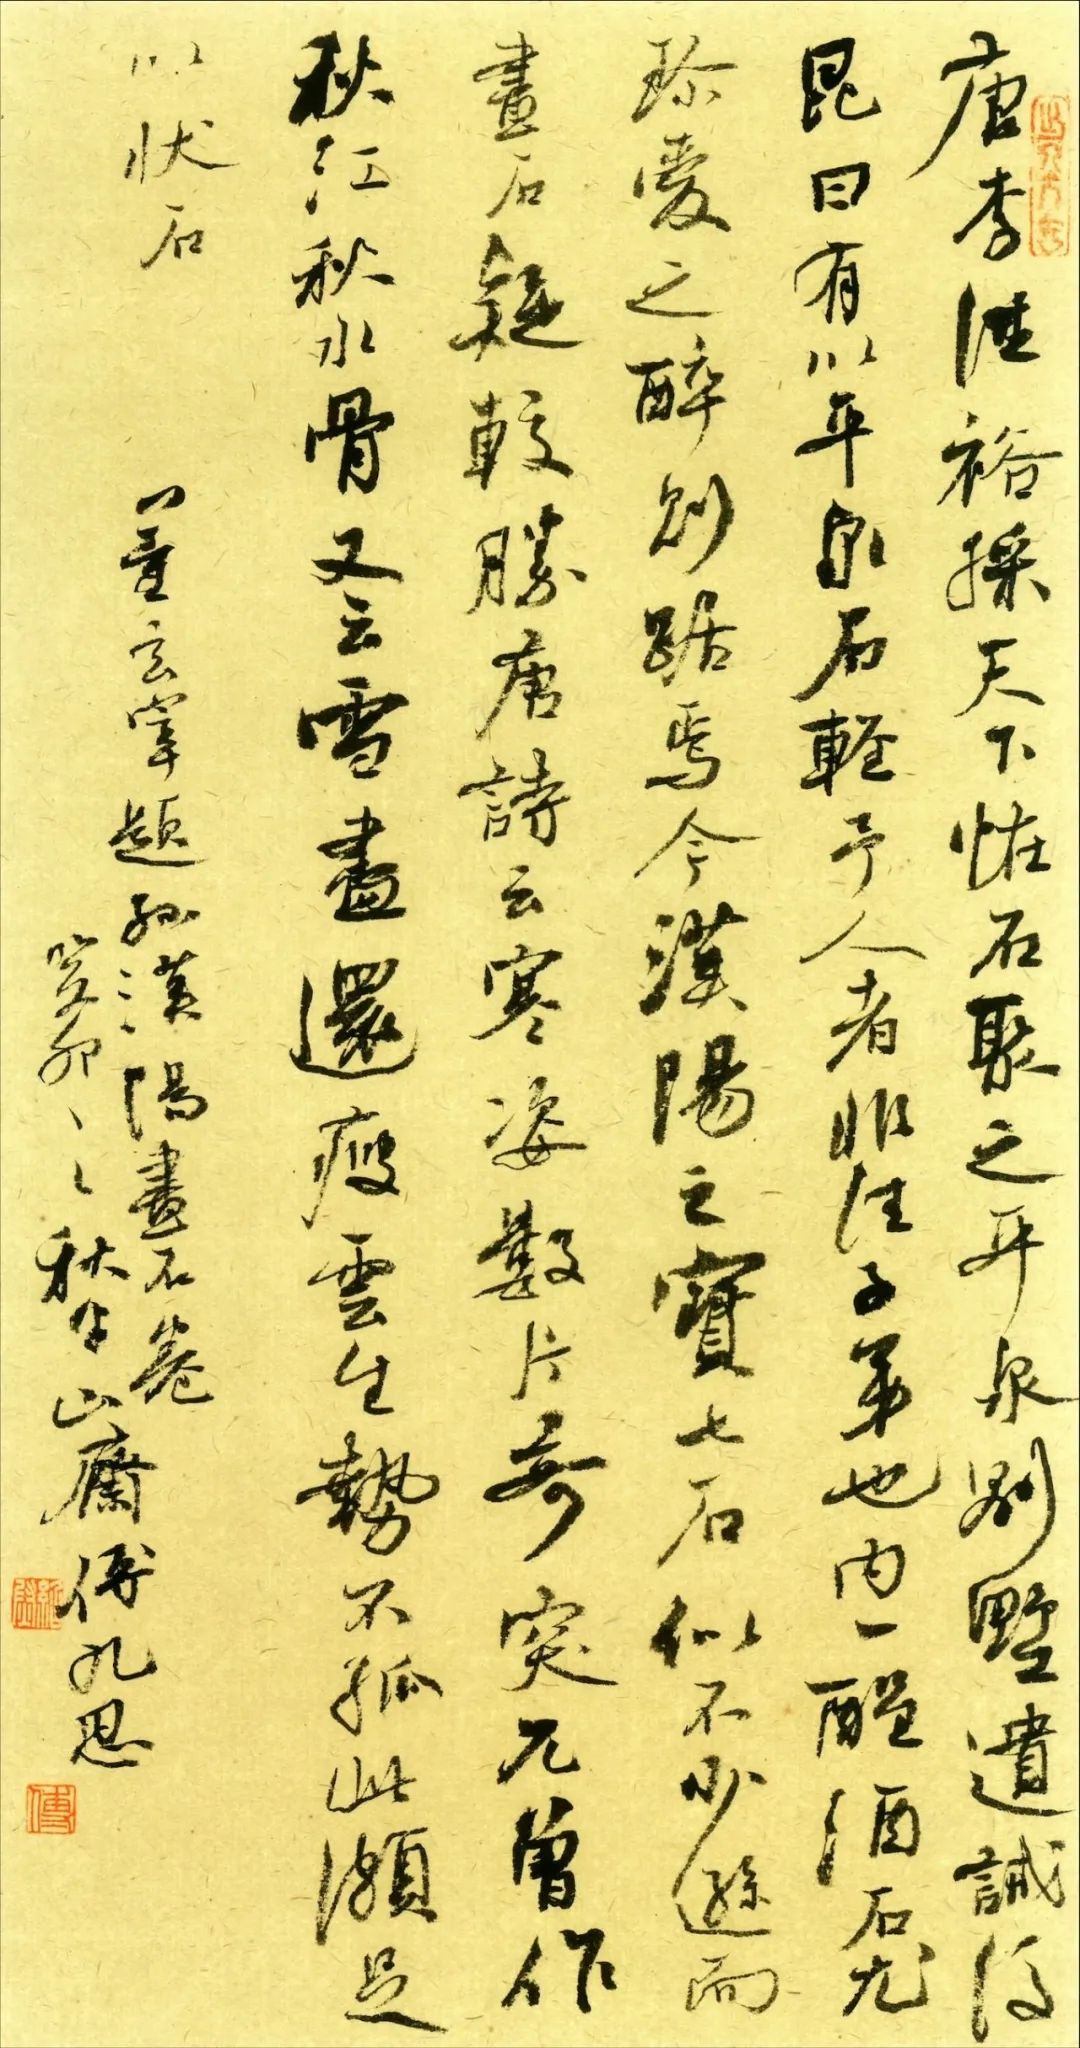 唐李德裕採天下怪石聚之平泉別墅遺誡後
昆曰有以平泉石輕予人者非佳子弟也内一醒酒石尤
珍愛之醉則踞焉今漢陽之寶七石似不少遜而
畫石疑較勝唐詩云寒姿數片奇突兀曾作
秋江秋水骨又云雪盡還瘦雲生勢不孤此頗足
以状石
董玄宰題孫漢陽畫石卷
癸卯之秋 山齋傅九思
傅